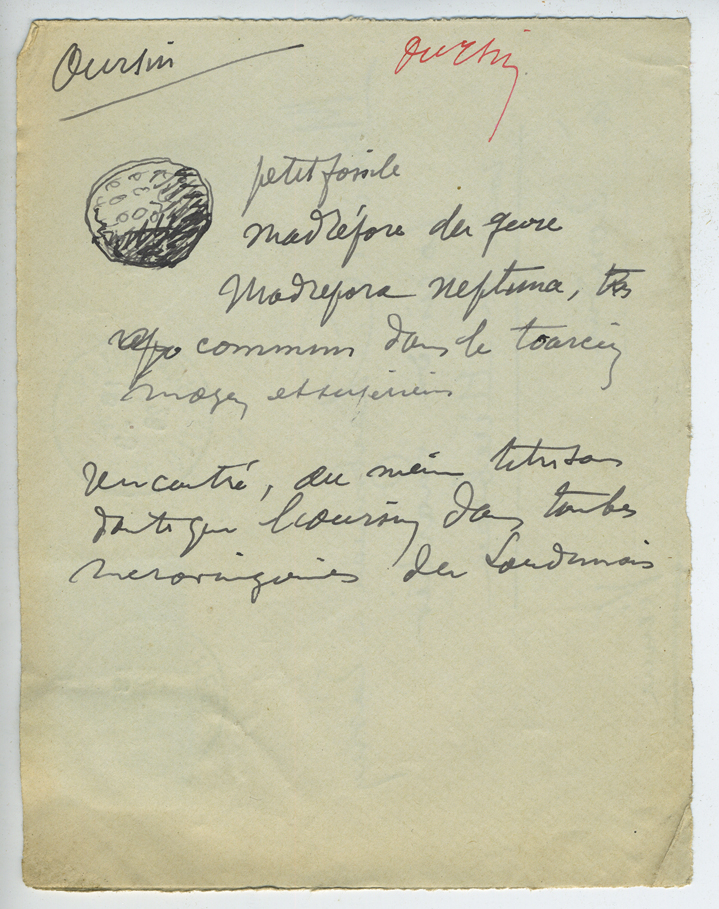 Oursin
Oursin
petit fossile
madrépore du genre
Madrepora neptuna, très
commun dans le
moyen et supérieur
rencontré, au même titre sans
doute que l'oursin dans tombes
mérovingiennes du Loudunais